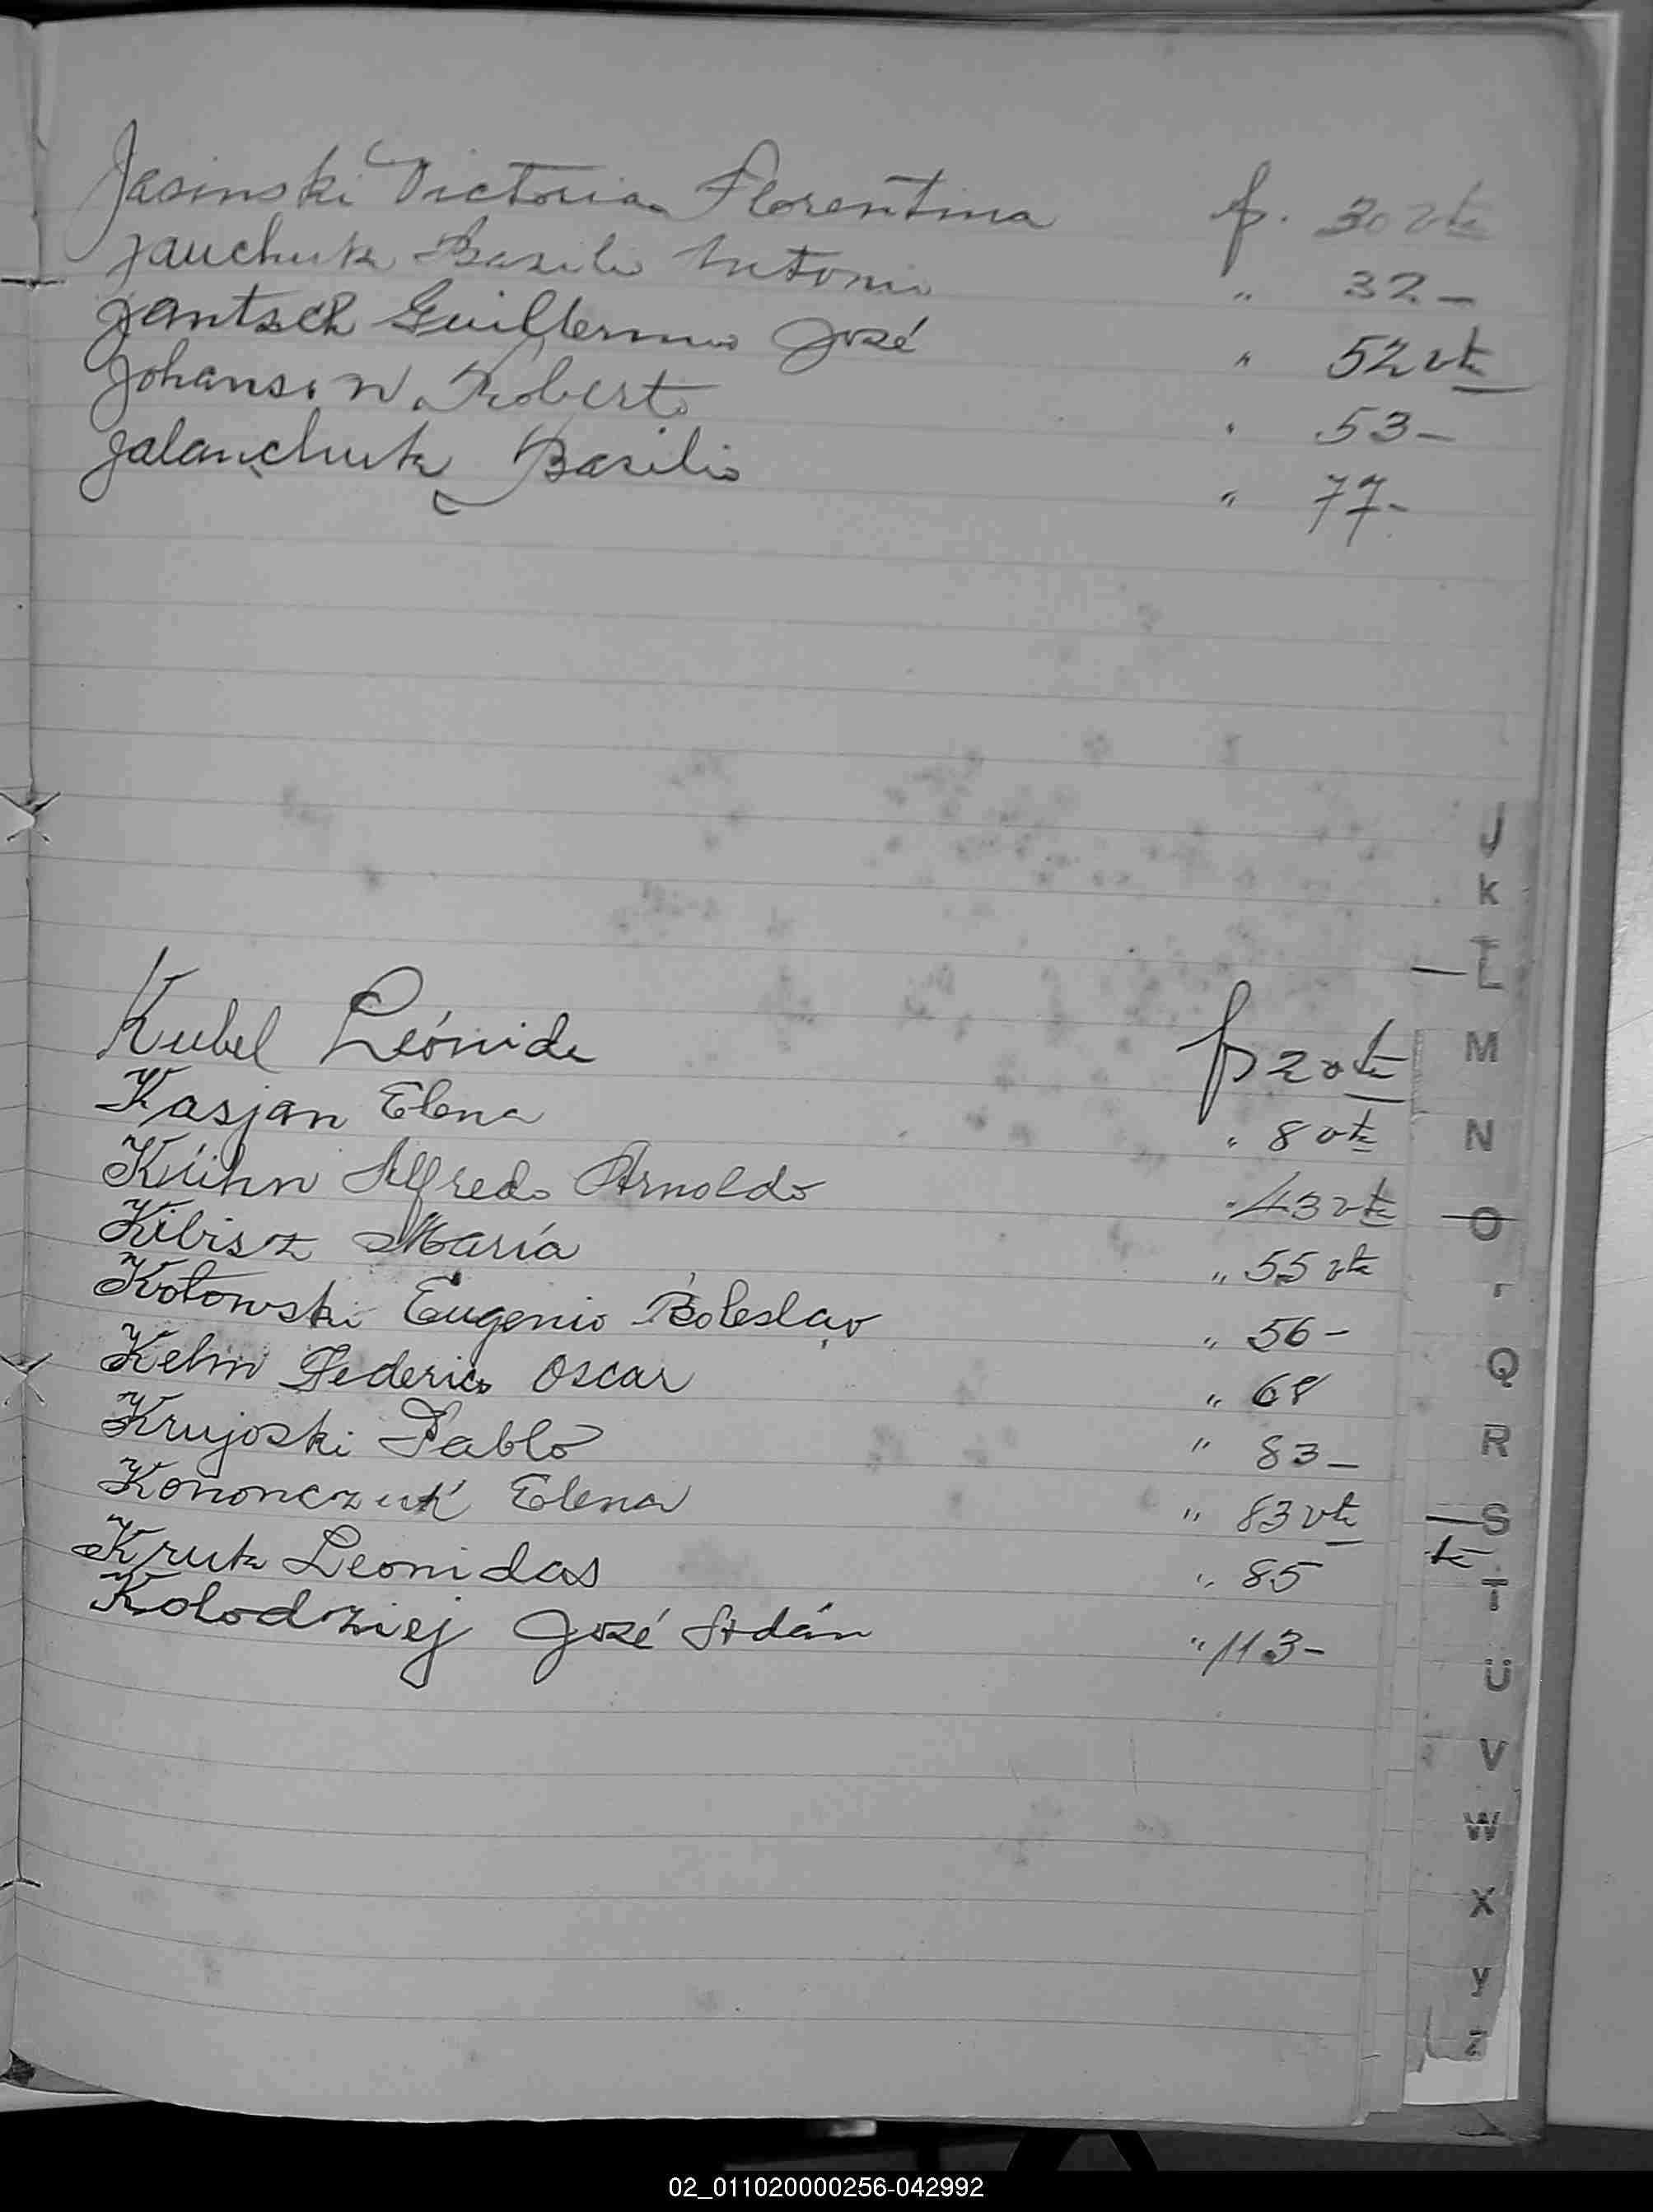 Jasinski Victoria Florentina f. 30 vta
Jauchuk Basilio Antonio " 32 -
Jantsch Guillermo José " 52 vta
Johanson Roberto " 53 -
Jalanchuk Basilio " 77 -
J
K
L
Kubel Leónida f 2 vta
M
Kasjan Elena " 8 vta
N
Kühn Alfredo Arnoldo " 43 vta
O
Kibisz María " 55 vta
Kotowski Eugenio Boleslao " 56 -
Kelm Federico Oscar " 68
Q
Krujoski Pablo " 83 -
R
Kononczuk Elena " 83 vta
S
Kruk Leonidas " 85
T
Kolodziej José Adán " 113 -
U
V
W
X
Y
Z
02_011020000256-042992